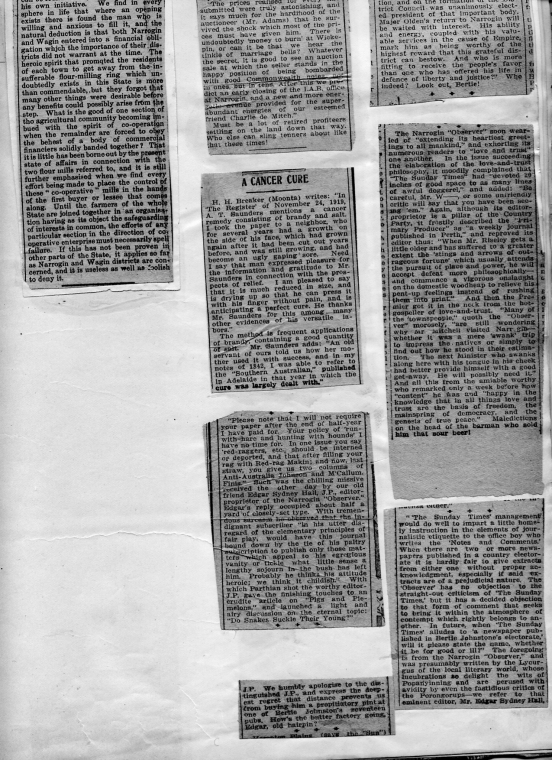 his own initiative. We find in every
sphere in life that where an opening
exists there is found the man who is
willing and anxious to fill it, and the
natural deduction is that both Narrogin
and Wagin entered into a financial obli-
gation which the importance of their dis-
tricts did not warrant at the time. The
heroic spirit that prompted the residents
of each town to get away from the in-
sufferable flour-milling ring which un-
doubtedly exists in this State is more
than commendable, but they forgot that
many other things were desirable before
any benefits could possibly arise from the
step. What is the good of one section of
the agricultural community becoming im-
bued with the spirit of co-operation
when the remainder are forced to obey
the behest of a body of commercial
financiers solidly banded together? That
it is little has been borne out by the present
state of affairs in connection with the
two flour mills referred to, and it is still
further emphasised when we find every
effort being made to place the control of
these "co-operative" mills in the hands
of the first buyer or lessee that comes
along. Until the farmers of the whole
State are joined together in an organisa-
tion having as its object the safeguarding
of interests in common, the efforts of any
particular section in the direction of co-
operative enterprise must necessarily spell
failure. If this has not been proved in
other parts of the State, it applies so far
as Narrogin and Wagin districts are con-
cerned, and it is useless as well as foolish
to deny it.
submitted were truly astonishing, and
it says much for the hardihood of the
auctioneer (Mr. Adams) that he sur-
vived the shock which most of the pri-
ces must have given him. There is
undoubtedly money to burn at Wicke-
pin, or can it be that we hear the
chinks of marriage bells? Whatever
the secret, it is good to see an auction
sale at which the seller stands in the
happy position of being bombarded
with good Commonwealth notes
an early closing of the I.A.B. office
at Narrogin, and a new and more exten-
sive avenue provided for the super-
abundant energies of our esteemed
friend Charlie de Mitch."
Must be a lot of retired profiteers
settling on the land down that way.
Who else can sling tenners about like
that these times!
A CANCER CURE
H. H. Brecker (Moonta) writes: "In
'The Register' of November 24, 1919,
A. T. Saunders mentions a cancer
remedy consisting of brandy and salt.
I took the paper to a neighbor, who
for several years had a growth on
the side of his face, which had grown
again after it had been cut out years
before, and was still growing, and had
become an ugly gaping sore. Need
I say that he expressed pleasure for
the information and gratitude to Mr.
Saunders in connection with the pros-
pects of relief. I am pleased to say
that it is much reduced in size, and
is drying up so that he can press it
with his finger without pain, and is
anticipating a perfect cure. He thanks
Mr. Saunders for this among many
other evidences of his versatile la-
bors."
The method is frequent applications
of brandy, containing a good quantity
of salt. Mr. Saunders adds: "An old
servant of ours told us how her mo-
ther used it with success, and in my
notes of 1842, I was able to refer to
the "Southern Australian," published
in Adelaide in that year in which the
cure was largely dealt with."
"Please note that I will not require
your paper after the end of half-year
I have paid for. Your policy of 'run-
with-hare and hunting with hounds' I
have no time for. In one issue you say
'red-raggers, etc., should be interned
or deported, and that after filling your
rag with Red-rag Makin; and now, last
straw, you give us two columns of
Anti-Australia Tobsson and M'Callum.
Finis." Such was the chilling missive
received the other day by our old
friend Edgar Sydney Hall, J.P., editor-
proprietor of the Narrogin "Observer."
Edgar's reply occupied about half a
yard of closely-set type. With tremen-
dous sarcasm he observed that the in-
dignant subscriber "in his utter dis-
regard of the elementary principles of
fair play, would have this journal
bound down by the tie of his paltry
subscription to publish only those mat-
ters which appeal to his egregious
vanity or tickle what little sense a
lengthy sojourn in the bush has left
him. Probably he thinks his attitude
heroic; we think it childish." With
which Parthian shot the worthy editor-
J.P. gave the finishing touches to an
erudite article on "Pigs and Ple-
and launched a light and
airy discussion on the eternal topic:
"Do Snakes Suckle Their Young"
J.P. We humbly apologise to the dis-
tinguished J.P., and express the deep-
est regret that distance prevents us
from buying him a propitiatory pint at
one of Bertie Johnston's seventeen
pubs. How's the butter factory going,
Edgar, old hairpin?
tion, and on the formation of the
Council was unanimously elect-
ed president of that important body.
Major Olden's return to Narrogin will
be waited with interest. His ability
and energy, coupled with his valu-
able services in the cause of Empire,
mark him as being worthy of the
highest reward that this grateful dis-
trict can bestow. And who is more
fitting to receive the people's favor
than one who has offered his life in
defence of liberty and justice?" Why
indeed? Look out, Bertie!
The Narrogin "Observer" soon wear-
ied of "extending its heartiest greet-
ings to all mankind," and exhorting its
numerous readers to "love and trust
one another. In the issue succeeding
the elaboration of the love-and-trust
philosophy, it moodily complained that
"The Sunday Times" had "devoted 18
inches of good space to as many lines
of awful doggerel," and added: "Be
careful, Mr. W——, or some unkind
critic will say that you have been see-
ing 'em." Also, although its editor-
proprietor is a pillar of the Country
Party, it frostily described the "Pri-
mary Producer" as "a weekly journal
published in Perth," and reproved its
editor thus: "When Mr. Ilberry gets a
little older and has suffered to a greater
extent the 'stings and arrows of out-
rageous fortune' which usually attends
the pursuit of place and power, he will
accept defeat more philosophically—
and commence a vigorous onslaught
on the domestic woodheap to relieve his
pent-up feelings instead of rushing
them into print." And then the Pre-
mier got it in the neck from the bon-
gospeller of love-and-trust. "Many of
the townspeople," quoth the "Obser-
ver" morosely, "are still wondering
why Mr. Mitchell visited Narrogin—
whether it was a mere sweat trip
to impress the natives or simply to
find out how he stood in their estima-
tion. The next Minister who swanks
along here with his tongue in his cheek
had better provide himself with a good
get-away. He will possibly need it."
And all this from the amiable worthy
who remarked only a week before how
"content" he was and "happy in the
knowledge that in all things love and
trust are the basis of freedom, the
mainspring of democracy, and the
genesis of true peace." Maledictions
on the head of the barman who sold
him that sour beer!
"The Sunday Times' management
would do well to impart a little home-
ly instruction in the elements of jour-
nalistic etiquette to the office boy who
writes the 'Notes and Comments.'
When there are two or more news-
papers published in a country elector-
ate it is hardly fair to give extracts
from either one without proper ac-
knowledgment, especially if said ex-
tracts are of a prejudiced nature. The
'Observer' has no objection to the
straight-out criticism of 'The Sunday
Times,' but it has a decided objection
to that form of comment that seeks
to bring it within the atmosphere of
contempt which rightly belongs to an-
other. In future, when 'The Sunday
Times' alludes to 'a newspaper pub-
lished in Bertie Johnston's electorate,'
will it please state the name, whether
it be for good or ill?" The foregoing
is from the Narrogin "Observer," and
was presumably written by the Lycur-
gus of the local literary world, whose
lucubrations so delight the wits of
Popanyinning and are perused with
avidity by even the fastidious critics of
the Porongorups—we refer to that
eminent editor, Mr. Edgar Sydney Hall,